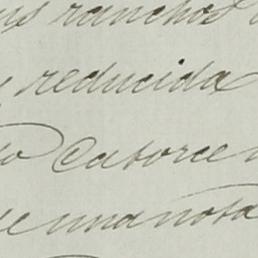 ranchos
reducida
catorce
una nota